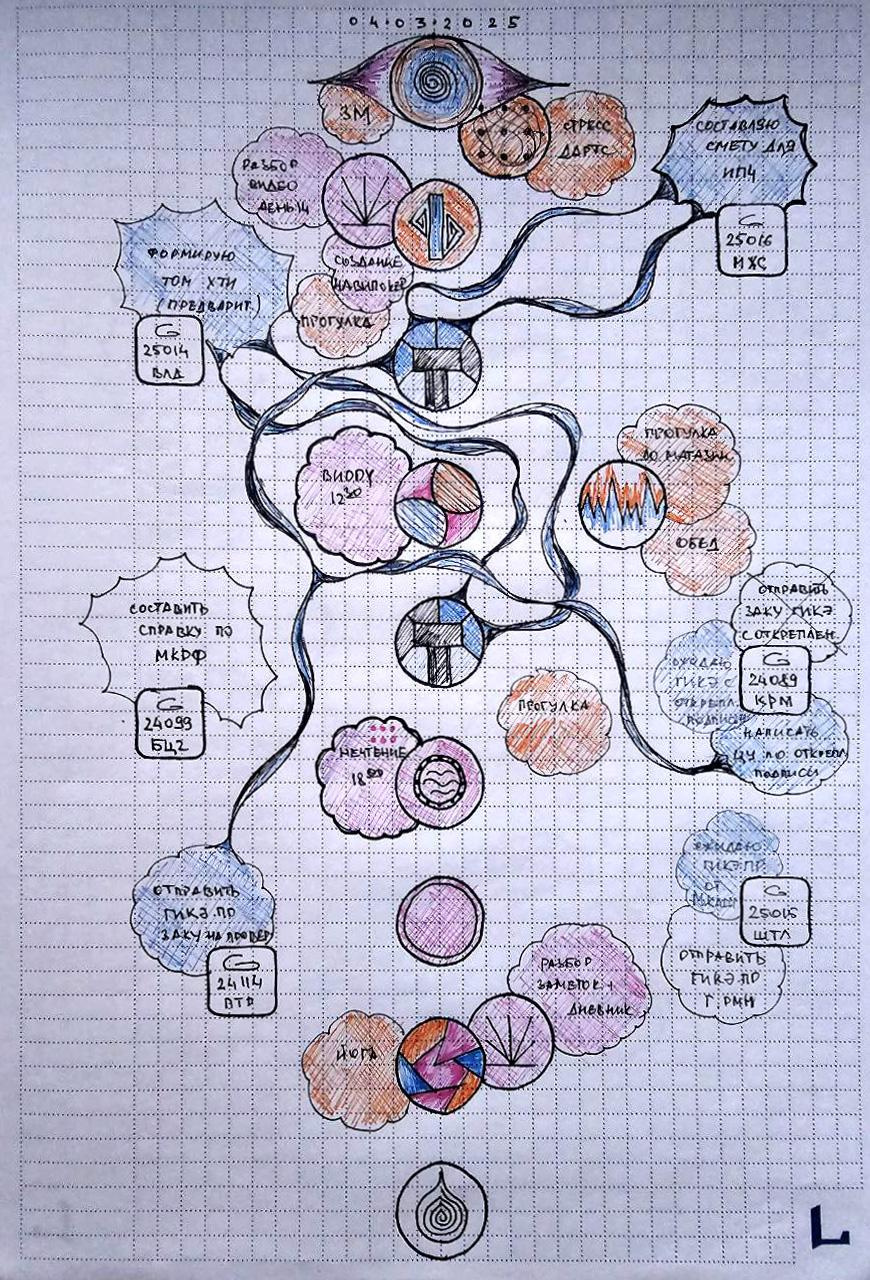 04.03.2025
ЗМ
СТРЕСС
ДАРТС
СОСТАВЛЯЮ
СМЕТУ ДЛЯ
ИПЦ
25016
МХС
РАЗБОР
ВИДЕО
ДЕНЬ 14
ФОРМИРУЮ
ТОМ ХТИ
(ПРЕДВАРИТ.)
25014
ВЛД
СОЗДАНИЕ
ПРОГУЛКА
ПРОГУЛКА
ДО МАГАЗИН
ОБЕД
12 30
СОСТАВИТЬ
СПРАВКУ ПО
МКДФ
24099
БЦ2
ОТПРАВИТЬ
ЗАКУ ГИКЭ
С ОТКРЕПЛЕН.
ОЖИДАЮ
ГИКЭ С
ОТКРЕПЛ.
ПОДПИСИ
24089
КРМ
НАПИСАТЬ
ЦУ ПО ОТКРЕПЛ
ПОДПИСИ
ПРОГУЛКА
18 00
ОТПРАВИТЬ
ГИКЭ.ПР
ЗАКУ НА ПРОВЕР
24114
ОЖИДАЮ
ГИКЭ.ПР
ОТ
25015
ШТЛ
ОТПРАВИТЬ
ГИКЭ.ПР
РАЗБОР
ЗАМЕТОК +
ДНЕВНИК
ЙОГА
L